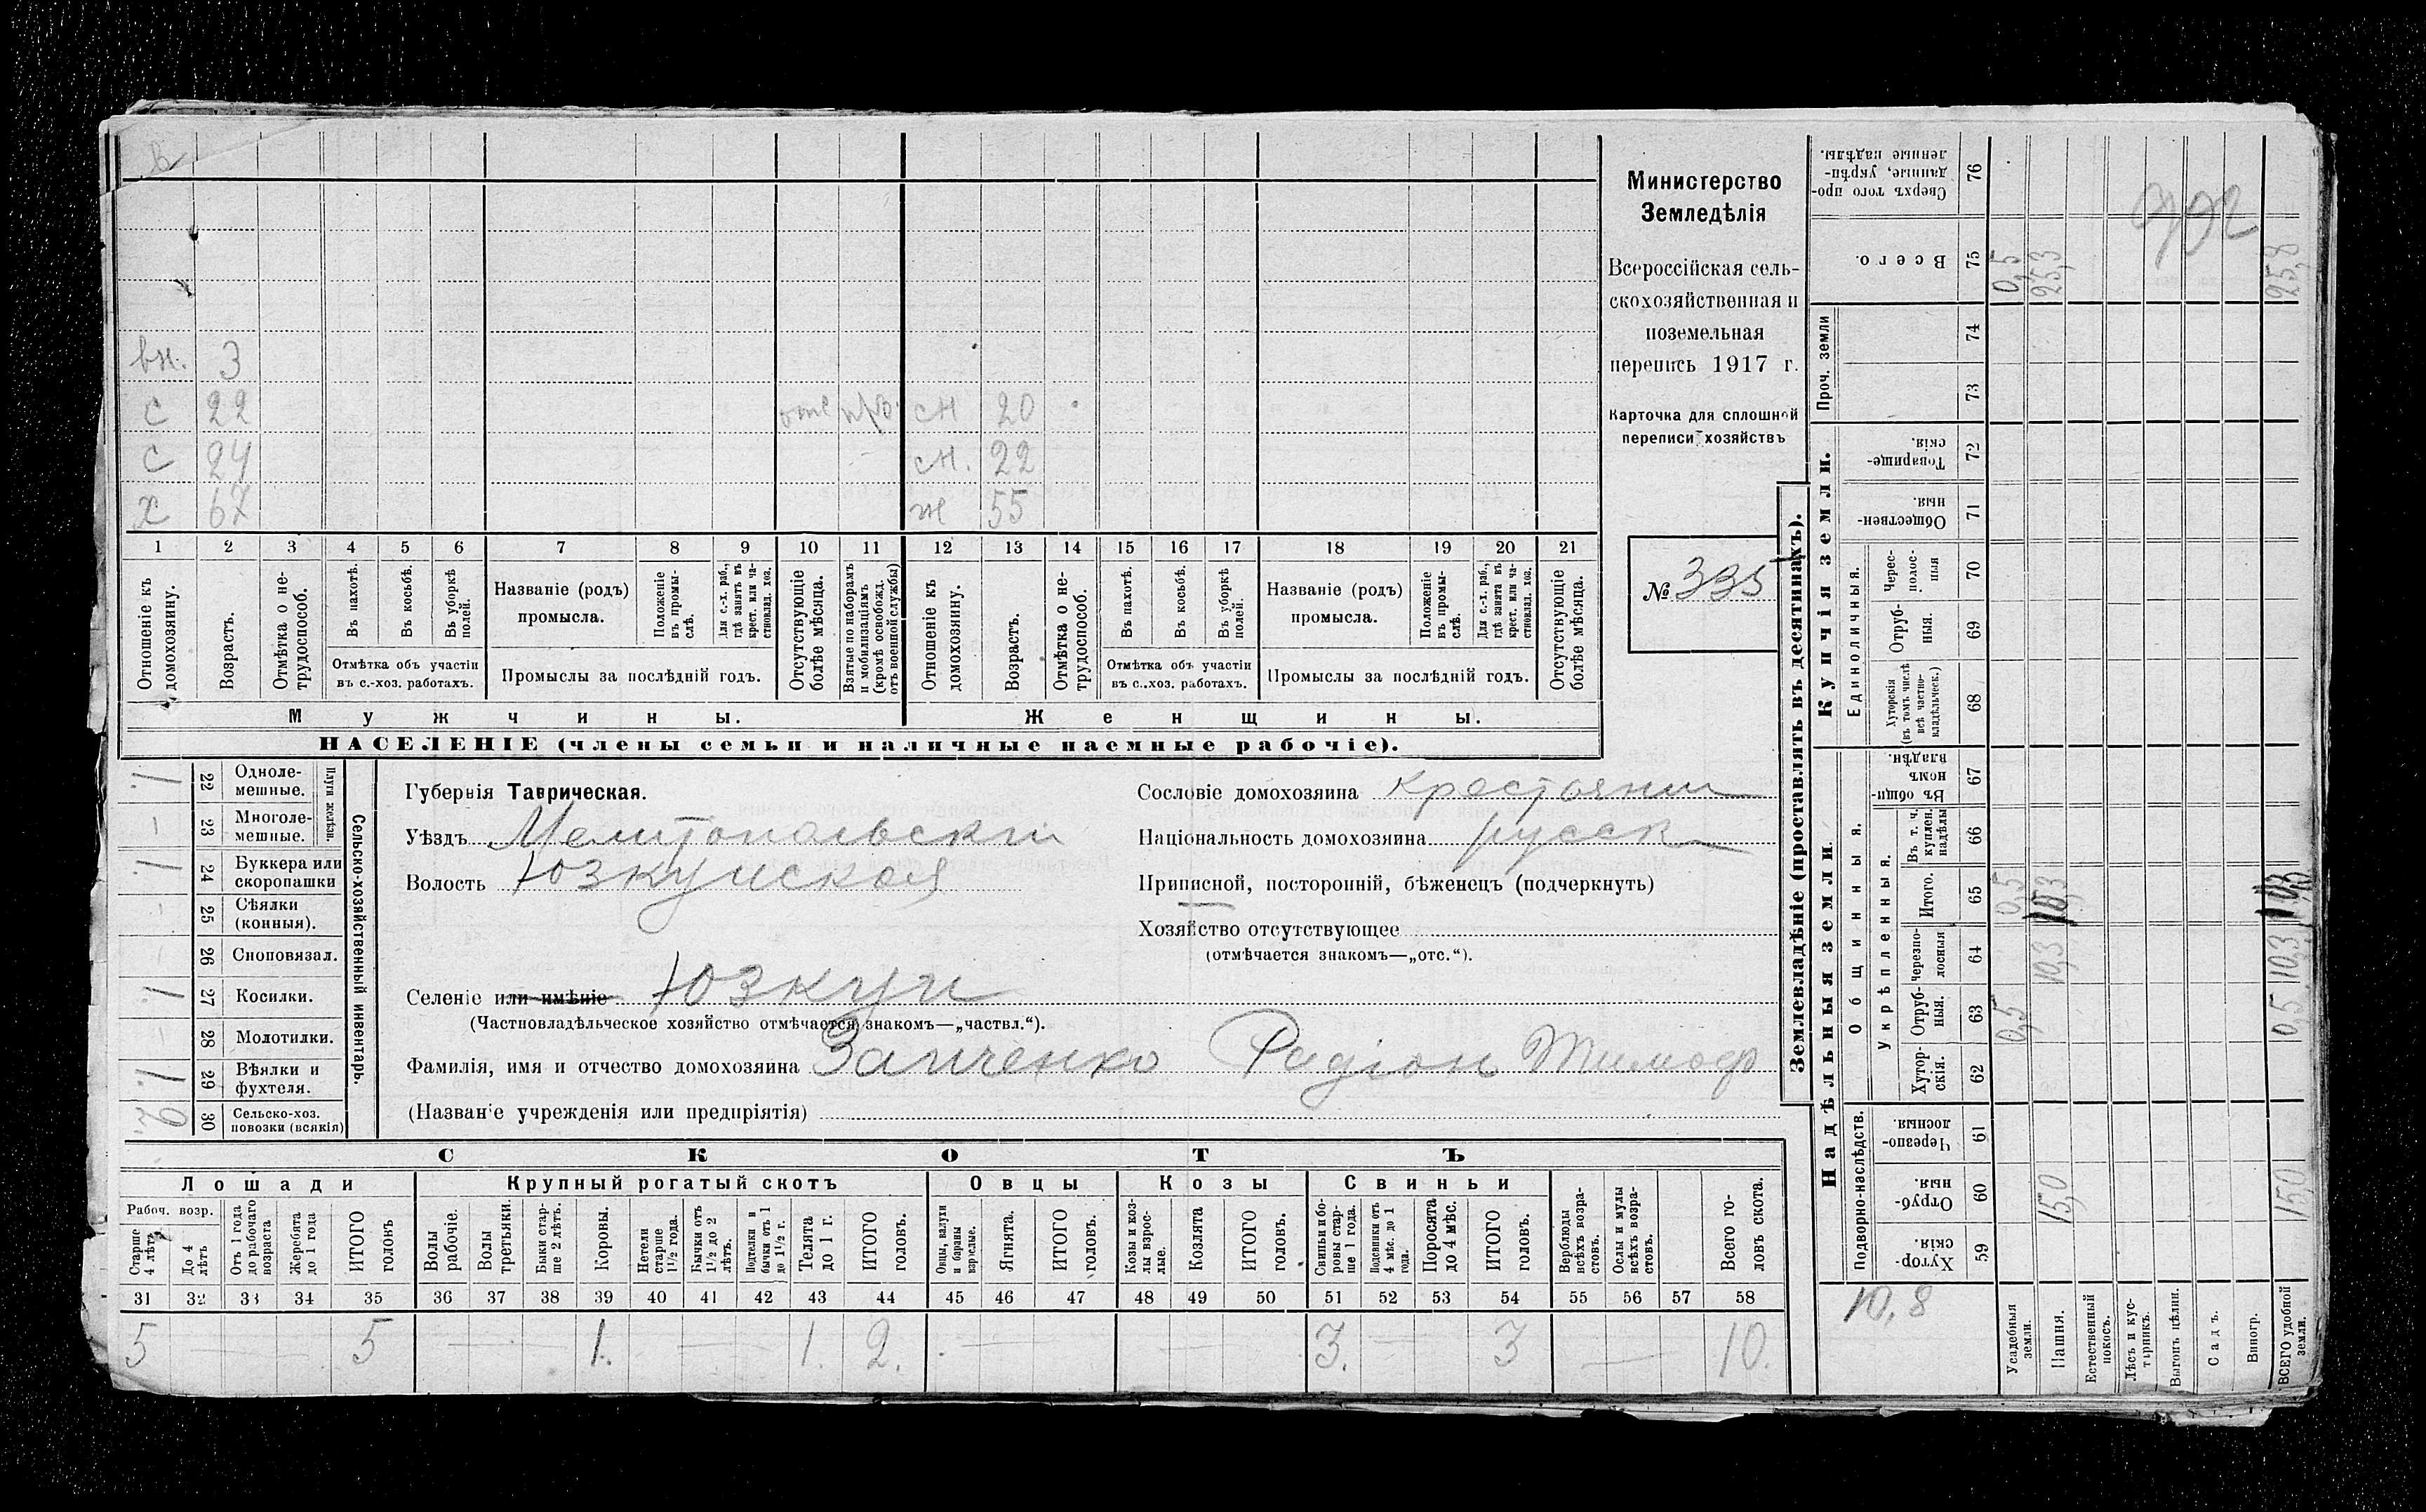 Министерство
Земледѣлія
Всероссійская сель-
скохозяйственная и
поземельная
перепись 1917 г.
Карточка для сплошной
переписи хозяйствъ
№ 335
вн. 3
с 22 отс сн 20
с 24 сн. 22
х 67 ж 55
1 2 3 4 5 6 7 8 9 10 11 12 13 14 15 16 17 18 19 20 21
Отношеніе къ домохозяину.
Возрастъ.
Отмѣтка о не-трудоспособ.
Въ пахотѣ.
Въ косьбѣ.
Въ уборкѣ полей.
Отмѣтка объ участіи
въ с.-хоз. работахъ.
Названіе (родъ)
промысла.
Положеніе въ промы-слѣ.
Для с.-х. раб., гдѣ занятъ въ крест. или ча-стновлад. хоз.
Промыслы за послѣдній годъ.
Отсутствующіе болѣе мѣсяца.
Взятые по наборамъ и мобилизаціямъ (кромѣ освобожд. отъ военной службы)
Отношеніе къ домохозяину.
Возрастъ.
Отмѣтка о не-трудоспособ.
Въ пахотѣ.
Въ косьбѣ.
Въ уборкѣ полей.
Отмѣтка объ участіи
въ с.-хоз. работахъ.
Названіе (родъ)
промысла.
Положеніе въ промы-слѣ.
Для с.-х. раб., гдѣ занята въ крест. или ча-стновлад. хоз.
Промыслы за послѣдній годъ.
Отсутствующіе болѣе мѣсяца.
Мужчины. Женщины.
НАСЕЛЕНІЕ (члены семьи и наличные наемные рабочіе).
Сельско-хозяйственный инвентарь.
Плуги желѣзн.
1 22 Одноле-мешные.
– 23 Многоле-мешные.
1 24 Буккера или скоропашки
– 25 Сѣялки (конныя).
26 Сноповязал.
1 27 Косилки.
– 28 Молотилки.
1 29 Вѣялки и фухтеля.
2 30 Сельско-хоз. повозки (всякія)
Губернія Таврическая.
Уѣздъ Мелитопольскій
Волость Юзкуйская
Селеніе или имѣніе Юзкуи
(Частновладѣльческое хозяйство отмѣчается знакомъ—„частвл.“).
Фамилія, имя и отчество домохозяина Заиченко Радіон Тимоф
(Названіе учрежденія или предпріятія)
Сословіе домохозяина крестьянин
Національность домохозяина русск
Приписной, посторонній, бѣженецъ (подчеркнуть)
Хозяйство отсутствующее
(отмѣчается знакомъ—„отс.“).
СКОТЪ
Лошади Крупный рогатый скотъ Овцы Козы Свиньи
Рабоч. возр.
Старше 4 лѣтъ
До 4 лѣтъ
Отъ 1 года до рабочаго возраста
Жеребята до 1 года
ИТОГО головъ
Волы рабочіе.
Волы третьяки.
Быки стар-ше 2 лѣтъ.
Коровы.
Нетели старше 1½ года.
Бычки отъ 1½ до 2 лѣтъ.
Подтелки и бычки отъ 1 до 1½ г.
Телята до 1 г.
ИТОГО головъ.
Овцы, валухи и бараны взрослые.
Ягнята.
ИТОГО головъ.
Козы и коз-лы взрос-лые.
Козлята
ИТОГО головъ.
Свиньи и бо-ровы стар-ше 1 года.
Подсвинки отъ 4 мѣс. до 1 года.
Поросята до 4 мѣс.
ИТОГО головъ.
Верблюды всѣхъ возра-стовъ.
Ослы и мулы всѣхъ возра-стовъ.
Всего го-ловъ скота.
31 32 33 34 35 36 37 38 39 40 41 42 43 44 45 46 47 48 49 50 51 52 53 54 55 56 57 58
5 5 1. 1. 2. 3. 3 10.
Землевладѣніе (проставлять въ десятинахъ).
Купчія земли.
Надѣльныя земли.
Сверхъ того про-данные, укрѣп-ленные надѣлы. 76
Всего. 75 0,5 25,3 25,8
Проч. земли 74
73
Товарище-скія. 72
Обществен-ныя. 71
Единоличныя.
Черес-полос-ныя 70
Отруб-ныя. 69
Хуторскія (въ томъ числѣ всѣ частно-владѣльческ.) 68
Общинныя.
Въ общи-номъ владѣн. 67
Укрѣпленныя.
Въ т. ч. куплен. надѣлы 66
Итого. 65 0,5
Черезпо-лосныя 64 10,3 10,3
Отруб-ныя. 63 0,5 0,5
Хутор-скія. 62
Подворно-наслѣдств.
Черезпо-лосныя 61
Отруб-ныя. 60 15,0 15,0
Хутор-скія. 59
10,8
Усадебныя земли.
Пашня.
Естественный покосъ.
Лѣсъ и кус-тарникъ.
Выгонъ цѣлин.
Садъ.
Виногр.
ВСЕГО удобной земли.